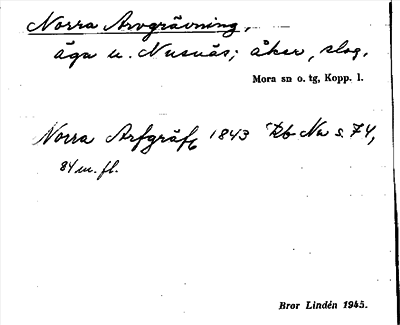 Norra Arvgrävning,
äga u. Nusnäs; åker, slog.
Mora sn o. tg, Kopp. l.
Norra Arfgräf 1843 Rb Na s. 74,
84 m. fl.
Bror Lindén 1945.